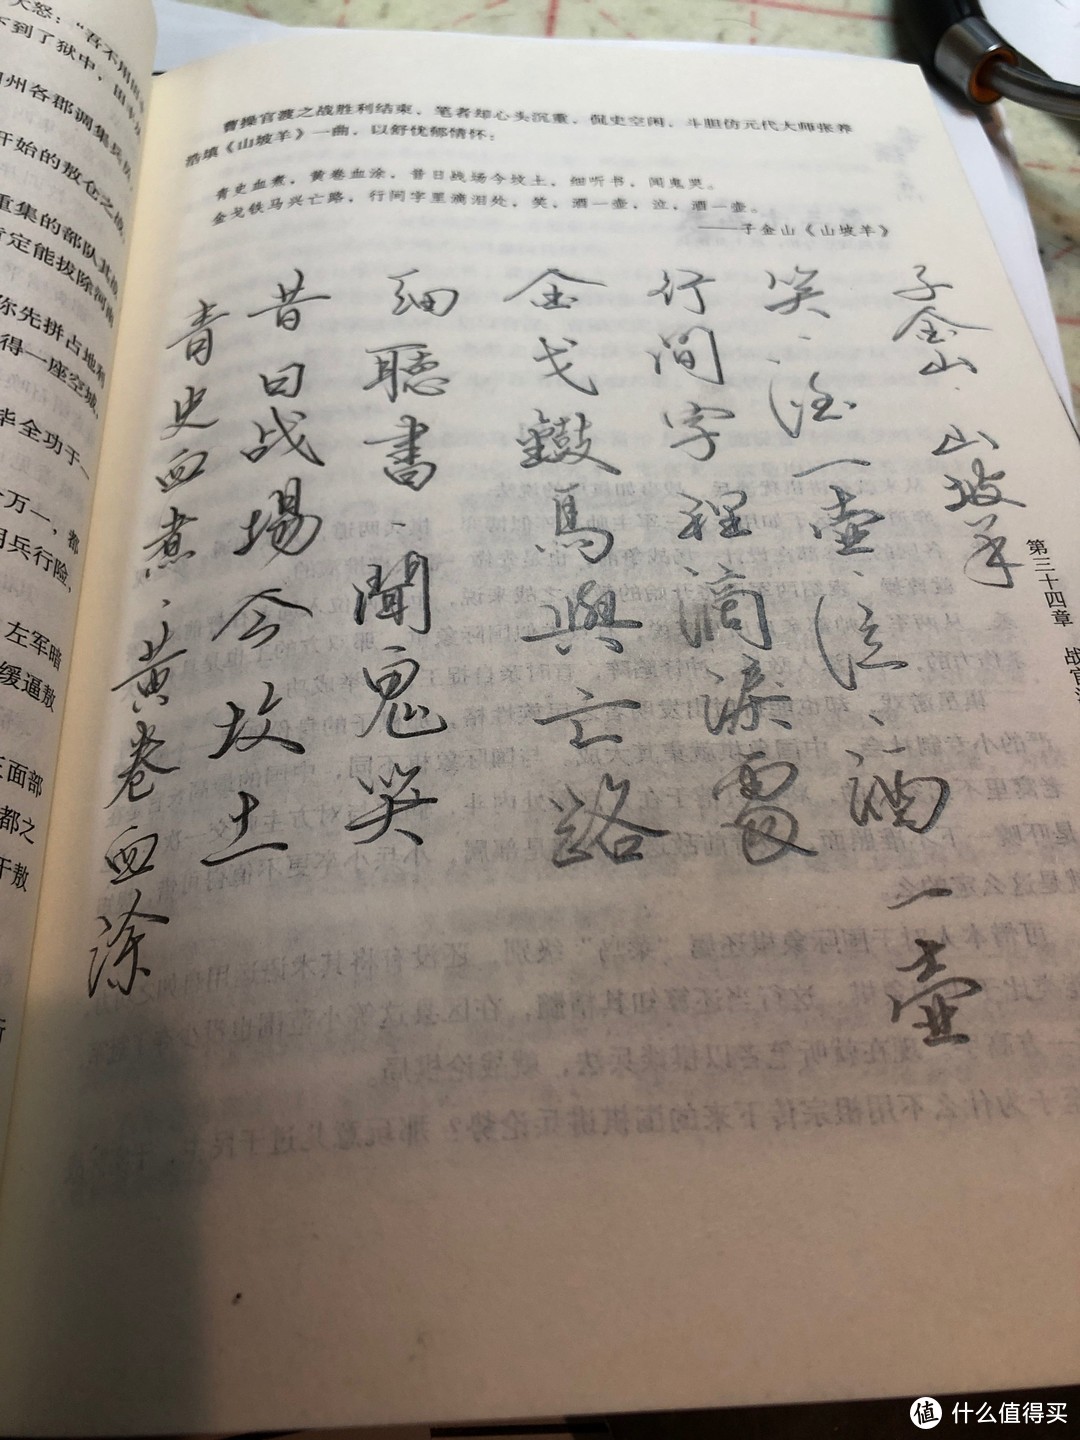 大怒：“吾不用田
不到了狱中，田丰
州各郡调集兵员，
开始的敖仓之战，
重集的部队其战
肯定能拔除河南
你先拼占地利
得一座空城，
毕全功于一
一万一，都
用兵行险，
左军暗
缓逼敖
三面部
都之
于敖
曹操官渡之战胜利结束，笔者却心头沉重，侃史空闲，斗胆仿元代大师张养
浩填《山坡羊》一曲，以舒忧郁情怀：
青史血煮，黄卷血涂，昔日战场今坟土，细听书，闻鬼哭。
金戈铁马兴亡路，行间字里滴泪处，笑，酒一壶，泣，酒一壶。
——子金山《山坡羊》
子金山·山坡羊
笑、酒一壶、泣、酒一壶
行间字裡滴淚處
金戈鐵馬興亡路
細聽書·聞鬼哭
昔日战場今坟土
青史血煮·黄卷血涂
第三十四章 战官
值 什么值得买